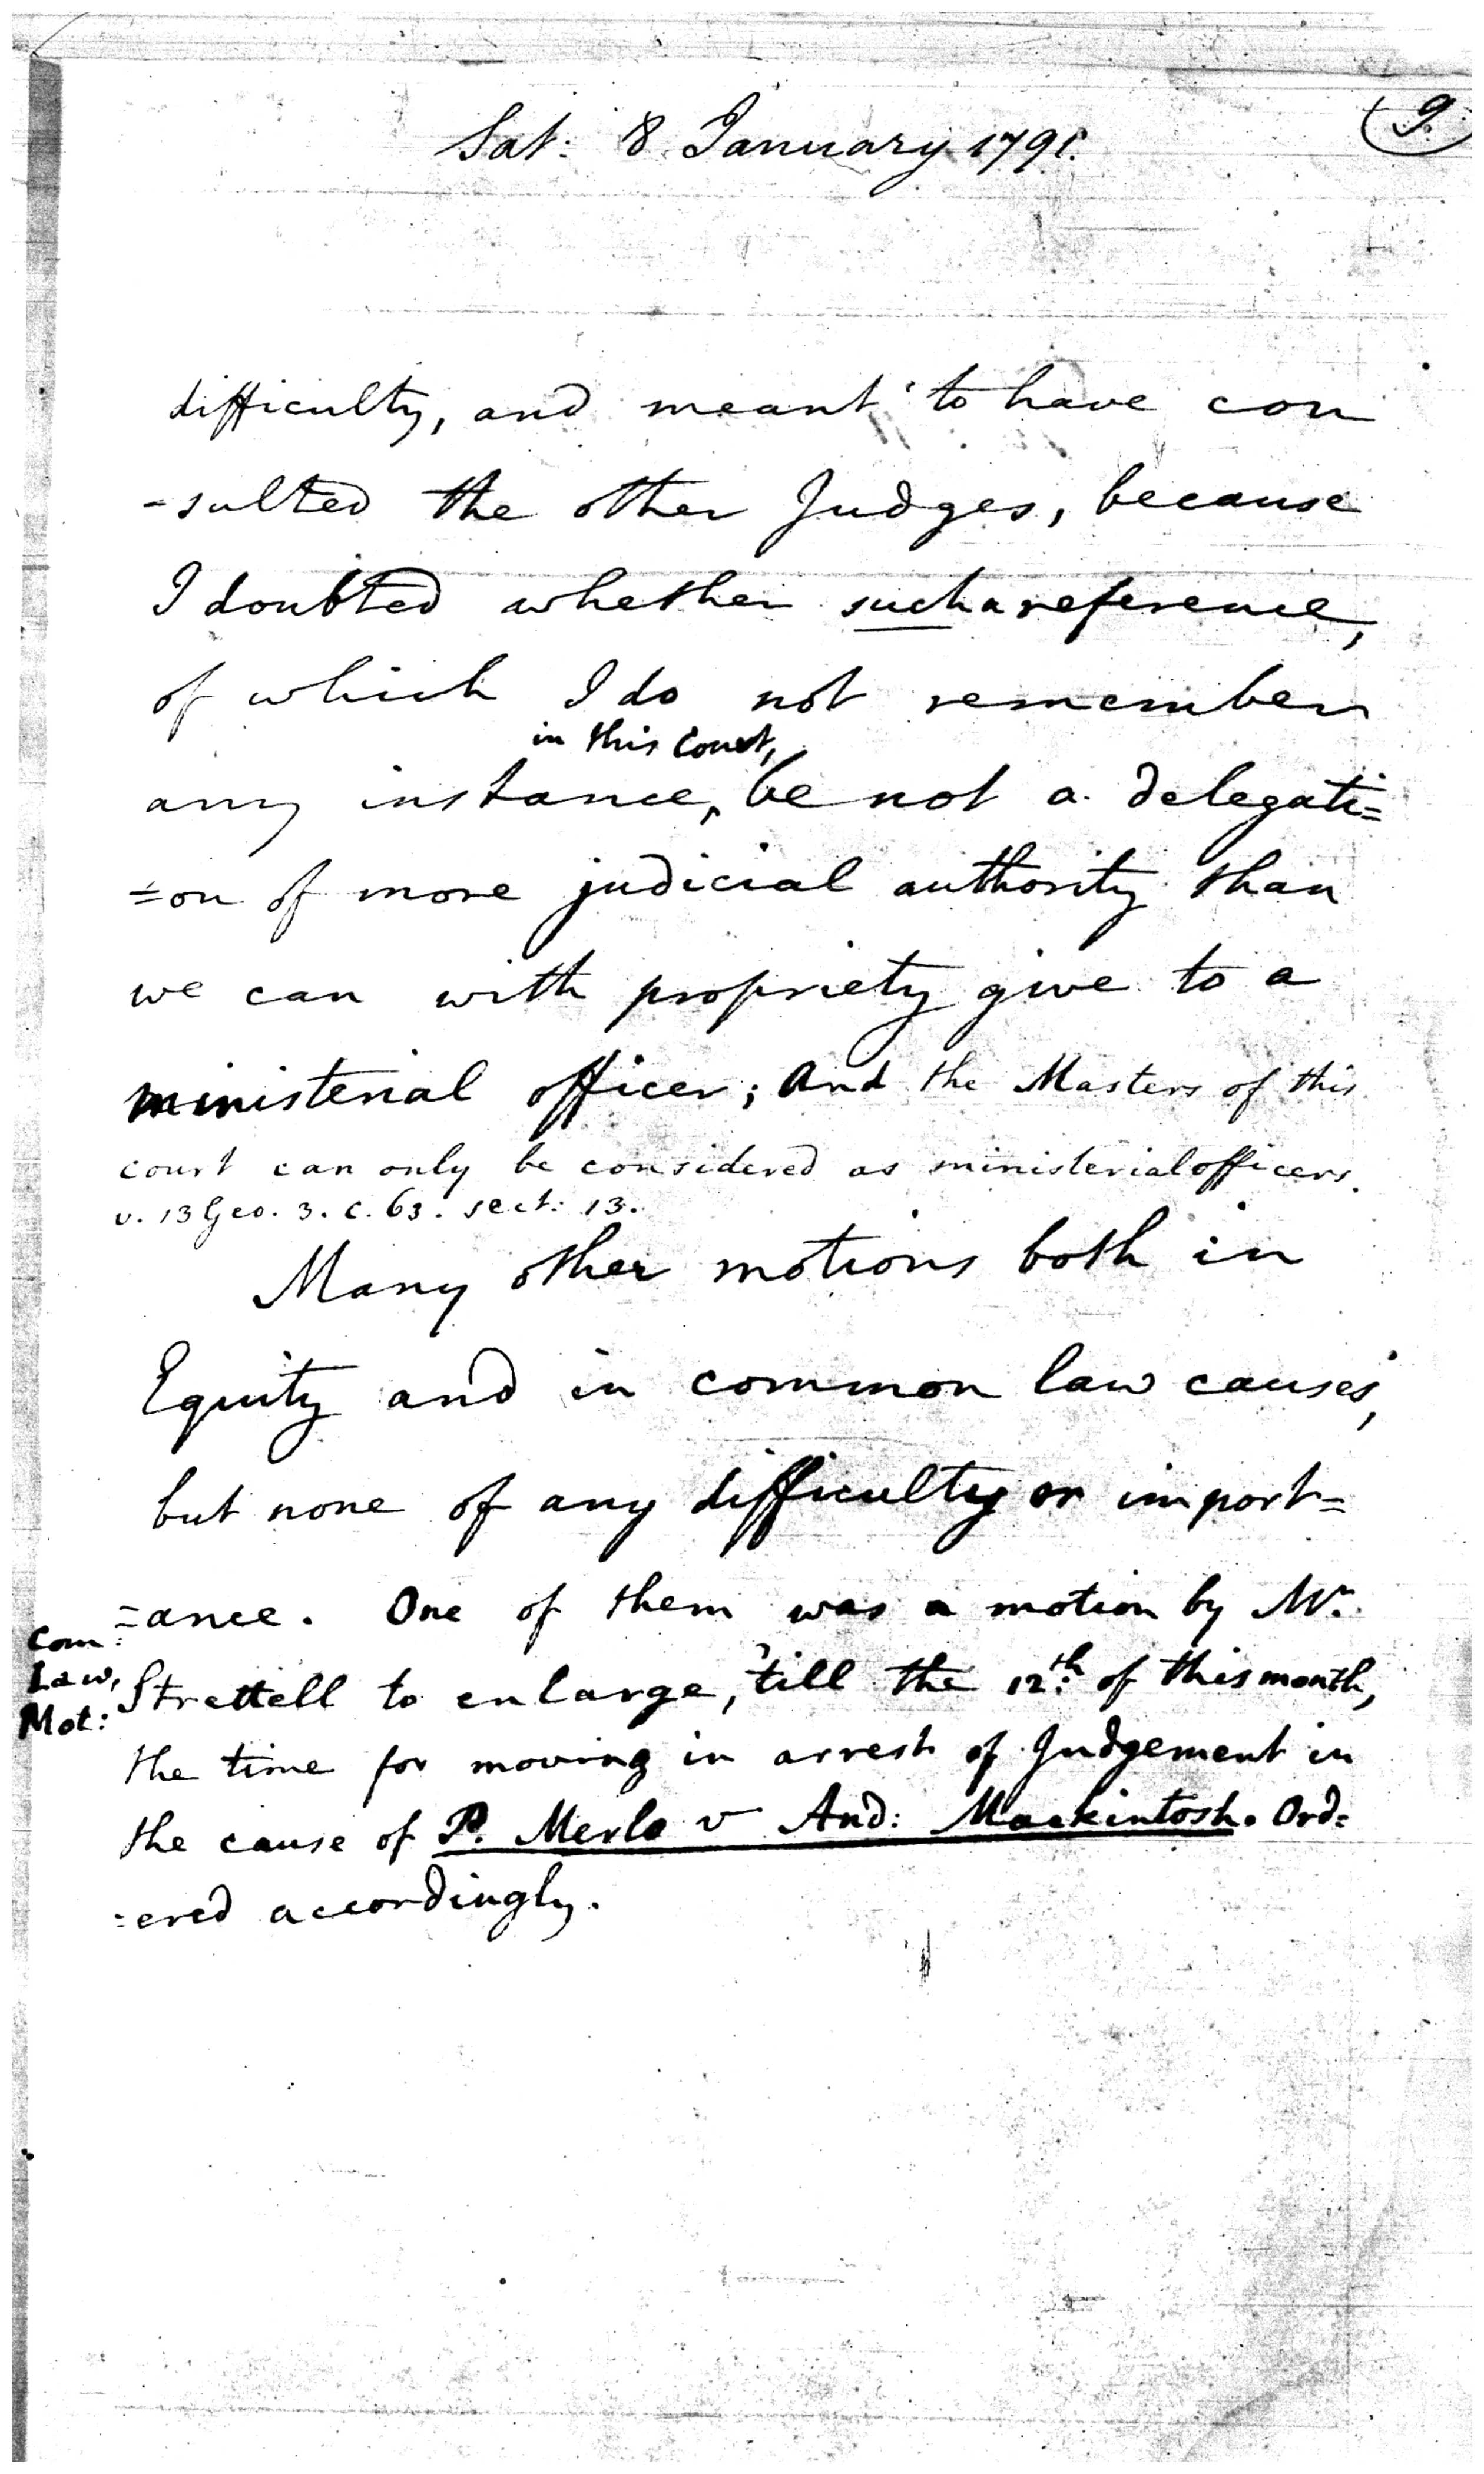 9.
Sat: 8 January 1791.
difficulty, and meant to have con
-sulted the other Judges, because
I doubted whether such a reference,
of which I do not remember
in this Court,
any instance, be not a delegati=
=on of more judicial authority than
we can with propriety give to a
ministerial officer; And the Masters of this
court can only be considered as ministerial officers.
v. 13 Geo. 3. c. 63. sect: 13.
Many other motions both in
Equity and in common law causes,
but none of any difficulty or import=
=ance. One of them was a motion by Mr.
Com:
Law,
Mot:
Strettell to enlarge, 'till the 12th. of this month,
the time for moving in arrest of Judgement in
the cause of P. Merlo v And: Mackintosh. Ord=
=ered accordingly.